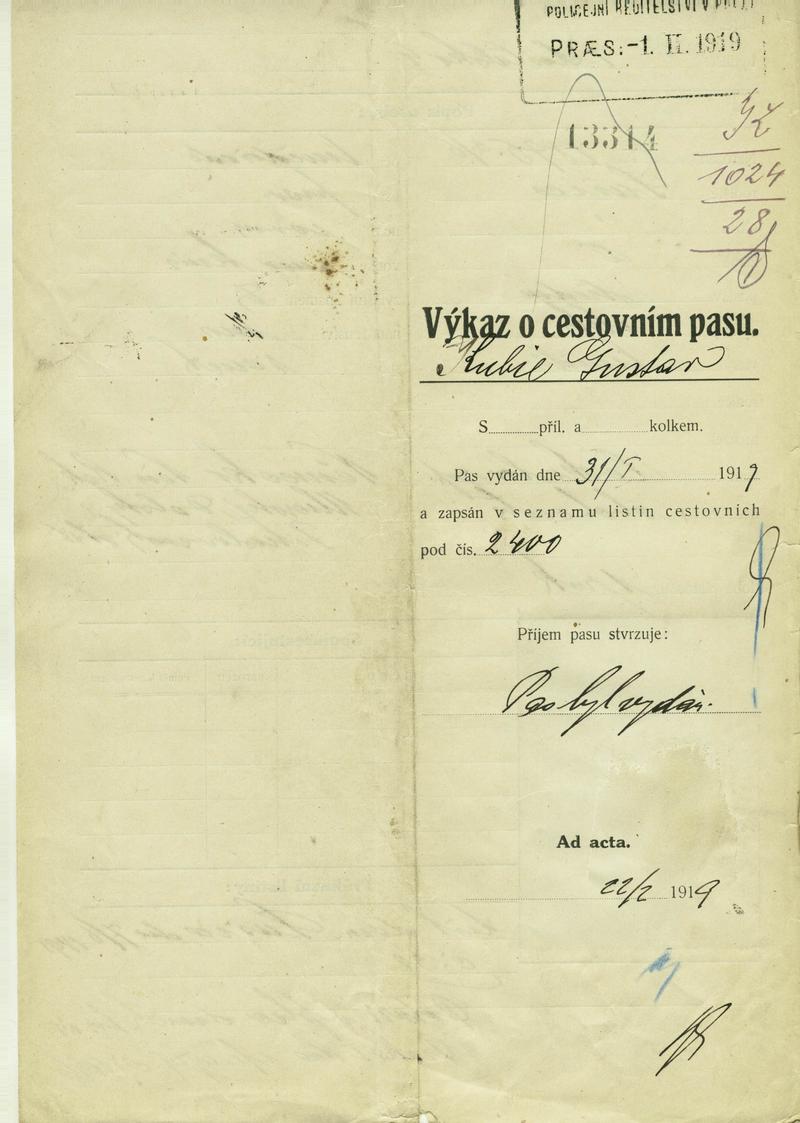 POLICEJNÍ ŘEDITELSTVÍ V
PRÆS:-1. II. 1919
13314
K
1024
28
Výkaz o cestovním pasu.
Kubie Gustav
S......příl. a......kolkem.
Pas vydán dne 31/I 1919
a zapsán v seznamu listin cestovních
pod čís. 2400
Příjem pasu stvrzuje:
Pas byl vydán.
Ad acta.
22/2 1919